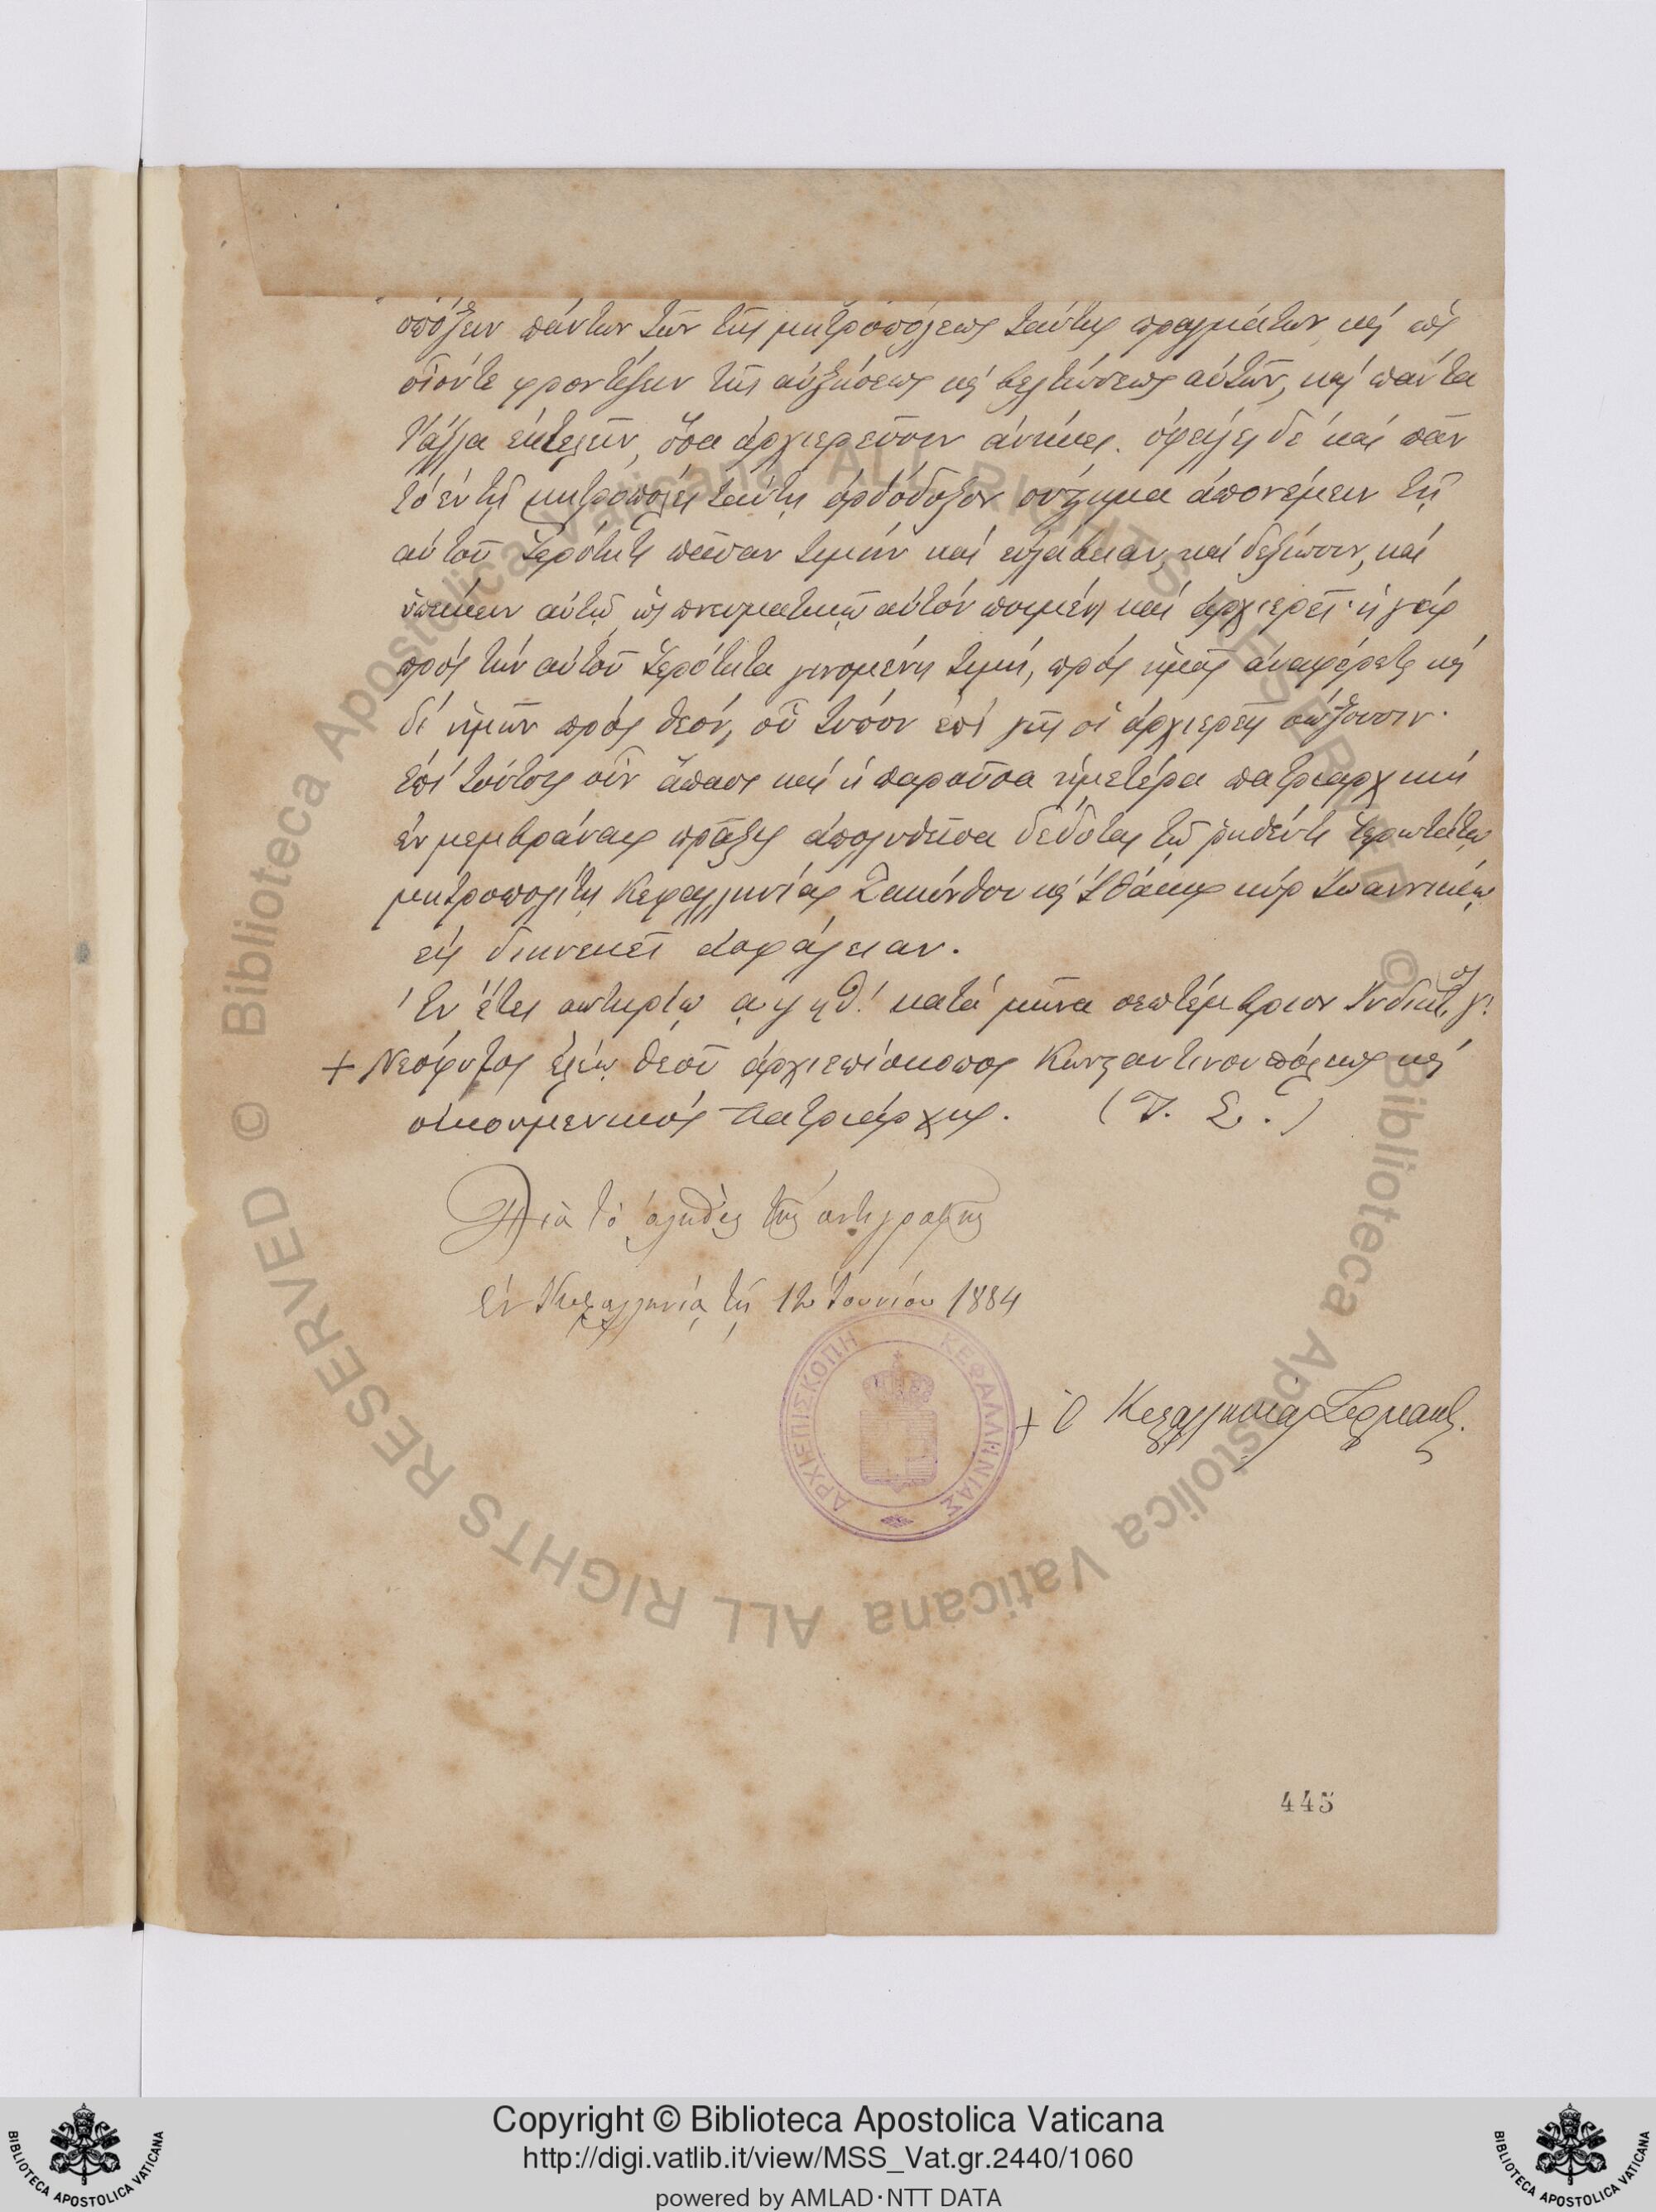 σπόζειν πάντων τῶν τῆς μητροπόλεως ταύτης πραγμάτων, καὶ ὡς
οἷόντε φροντίζειν τῆς αὐξήσεως καὶ βελτιώσεως αὐτῶν, καὶ πάντα
τἄλλα ἐκτελεῖν, ὅσα ἀρχιερεῦσιν ἀνήκει. ὀφείλει δὲ καὶ πᾶν
τὸ ἐν τῇ μητροπόλει ταύτῃ ὀρθόδοξον σύστημα ἀπονέμειν τῇ
αὐτοῦ ἱερότητι πᾶσαν τιμὴν καὶ εὐλάβειαν, καὶ δεξίωσιν, καὶ
ὑπείκειν αὐτῷ ὡς πνευματικῷ αὐτῶν ποιμένι καὶ ἀρχιερεῖ· ἡ γὰρ
πρὸς τὴν αὐτοῦ ἱερότητα γινομένη τιμή, πρὸς ἡμᾶς ἀναφέρεται καὶ
δι' ἡμῶν πρὸς θεόν, οὗ τύπον ἐπὶ γῆς οἱ ἀρχιερεῖς σώζουσιν·
ἐπὶ τούτοις οὖν ἅπασι καὶ ἡ παροῦσα ἡμετέρα πατριαρχικὴ
ἐν μεμβράναις πρᾶξις ἀπολυθεῖσα δέδοται τῷ ῥηθέντι ἱερωτάτῳ
μητροπολίτῃ Κεφαλληνίας Ζακύνθου καὶ Ἰθάκης κὺρ Ἰωαννικίῳ
εἰς διηνεκεῖ ἀσφάλειαν.
Ἐν ἔτει σωτηρίῳ κατὰ μῆνα σεπτέμβριον Ἰνδικτ. γ.
+ Νεόφυτος ἐλέῳ θεοῦ ἀρχιεπίσκοπος Κωνσταντινουπόλεως καὶ
οἰκουμενικὸς πατριάρχης. (Τ. Σ.)
Διὰ τὸ ἀληθὲς τῆς ἀντιγραφῆς
Ἐν Κεφαλληνίᾳ τῇ 12 Ἰουνίου 1884
ΑΡΧΙΕΠΙΣΚΟΠΗ ΚΕΦΑΛΛΗΝΙΑΣ
+ Ὁ Κεφαλληνίας Γερμανός.
445
© Biblioteca Apostolica Vaticana ALL RIGHTS RESERVED
© Biblioteca Apostolica Vaticana ALL RIGHTS RESERVED
Copyright © Biblioteca Apostolica Vaticana
http://digi.vatlib.it/view/MSS_Vat.gr.2440/1060
powered by AMLAD·NTT DATA
BIBLIOTECA APOSTOLICA VATICANA
BIBLIOTECA APOSTOLICA VATICANA